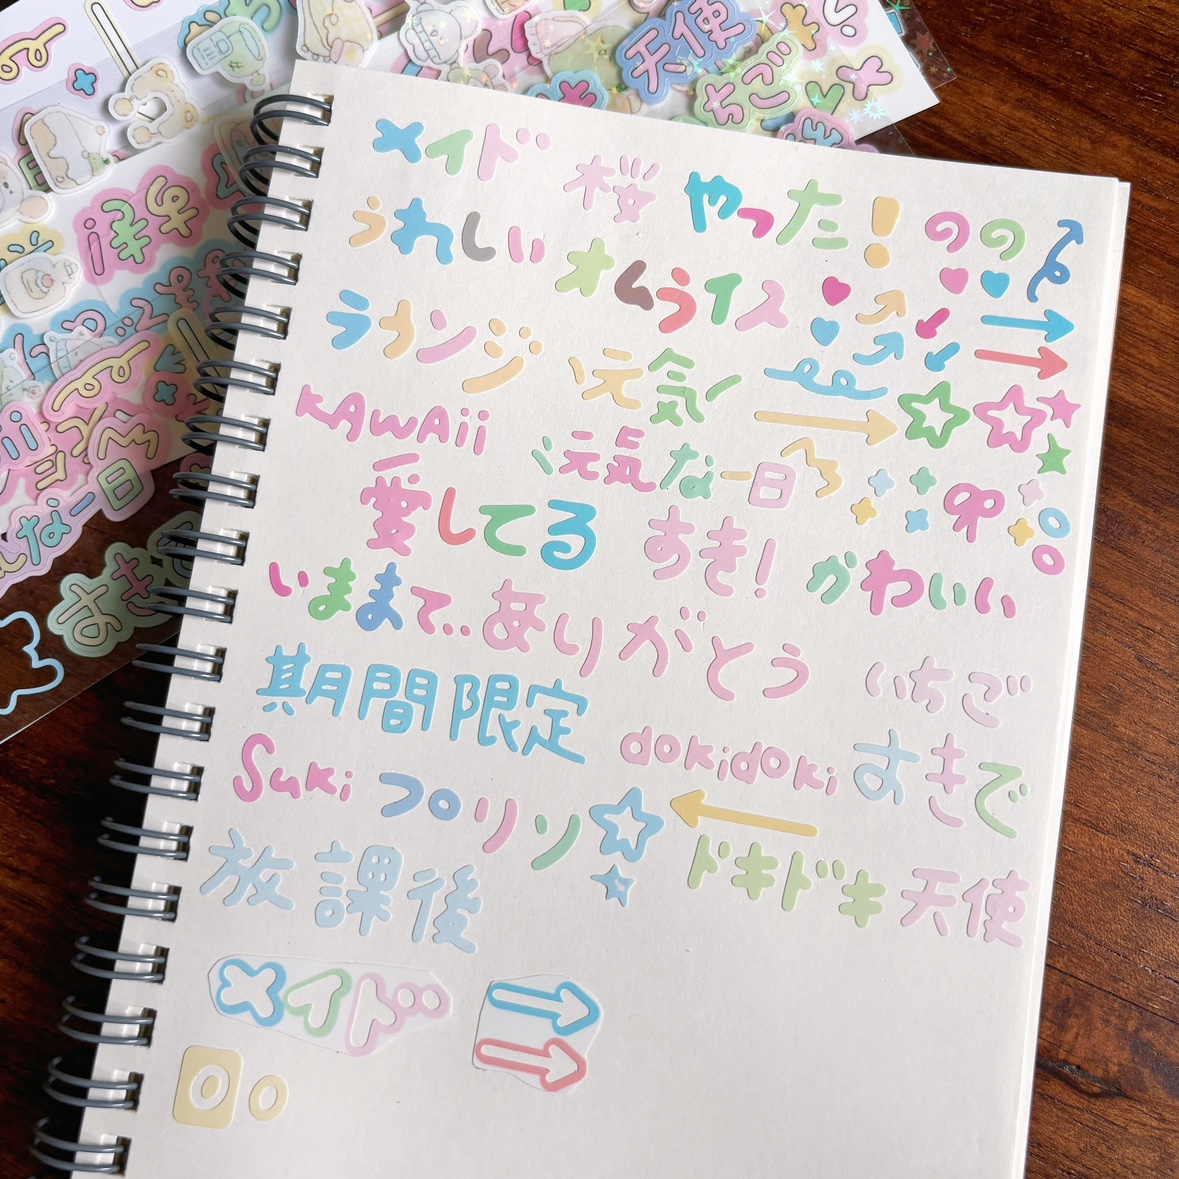 メイド 桜 やった！ のの
うれしい オムライス
ラウンジ 元気
KAWAii 元気な一日
愛してる すき! かわいい
いままで.. ありがとう いちご
期間限定 dokidoki すきで
Suki プリン
放課後 ドキドキ 天使
メイド
天使
いちご
な一日
すき